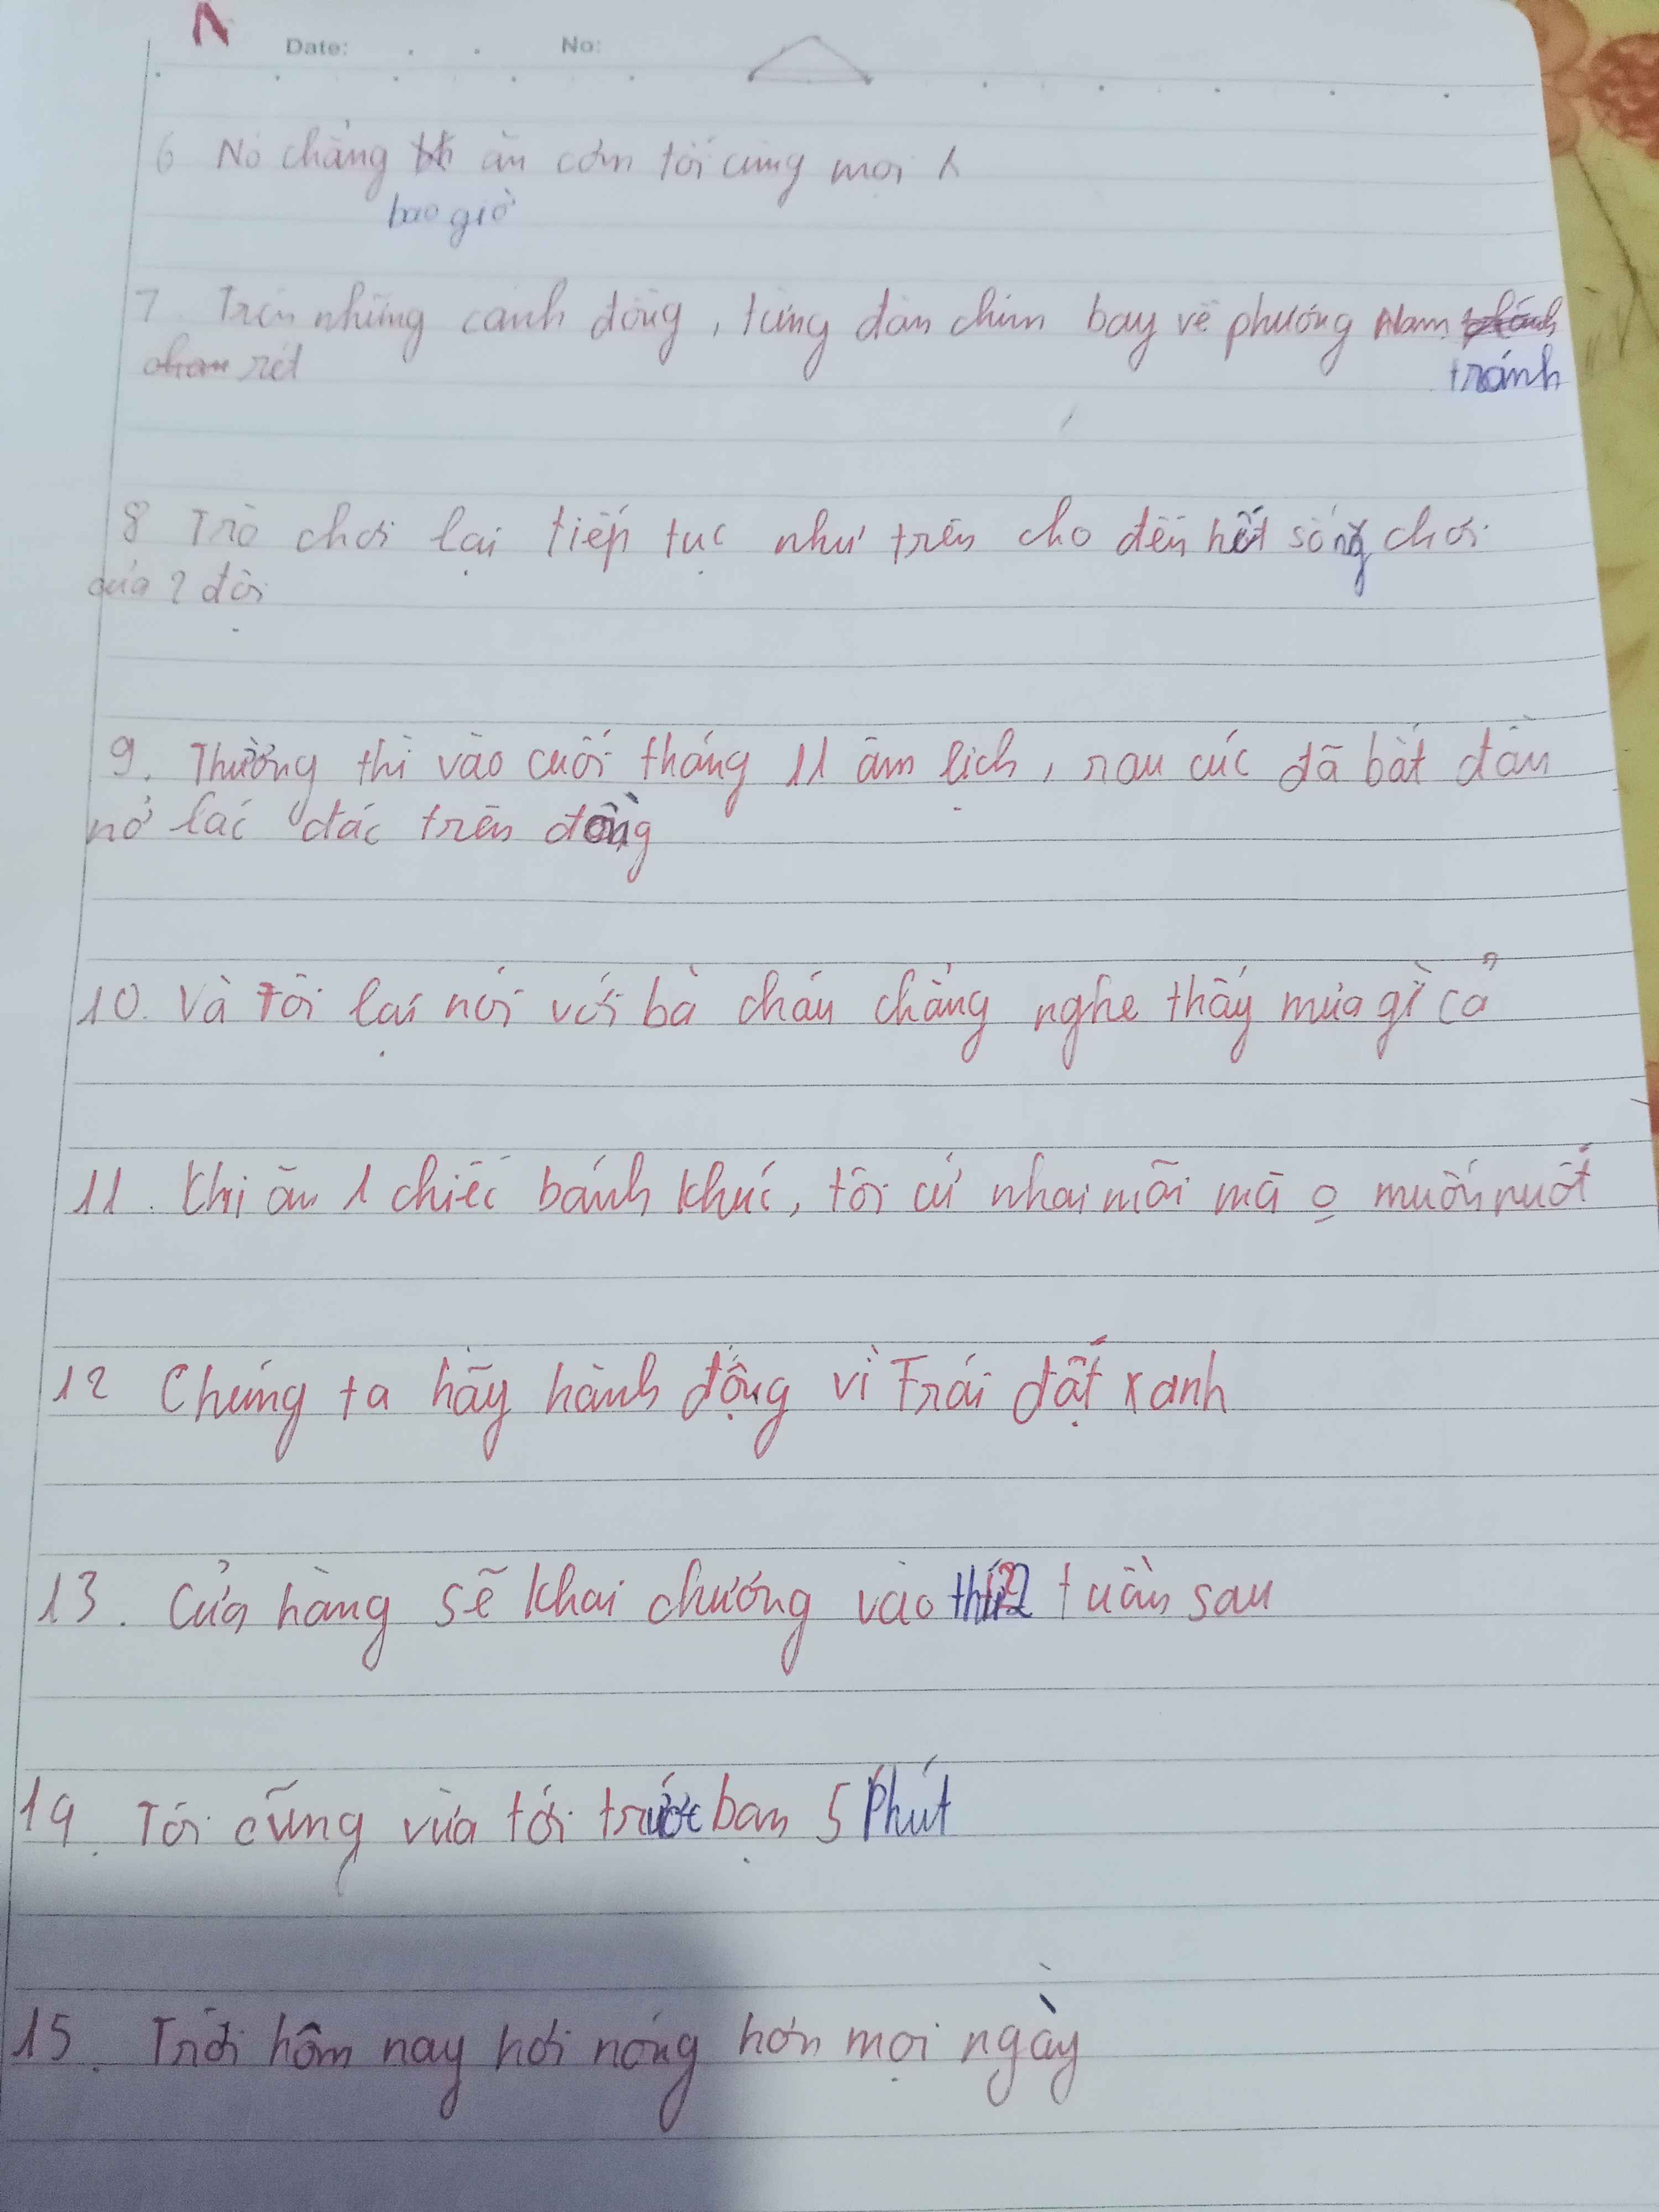 Date: No:
6 Nó chẳng ăn cơm tối cùng mọi
bao giờ
7 Trên những cánh đồng, từng đàn chim bay về phương Nam
rét tránh
8 Trò chơi lại tiếp tục như trên cho đến hết số chơi
của 2 đội
9. Thường thì vào cuối tháng 11 âm lịch, rau cúc đã bắt đầu
nở lác đác trên đồng
10. Và tôi lại nói với bà cháu chẳng nghe thấy mùa gì cả
11. Khi ăn 1 chiếc bánh khúc, tôi cứ nhai mãi mà o muốn nuốt
12 Chúng ta hãy hành động vì Trái đất xanh
13. Cửa hàng sẽ khai chương vào thứ 2 tuần sau
14. Tôi cũng vừa tới trước bạn 5 phút
15. Trời hôm nay hơi nóng hơn mọi ngày